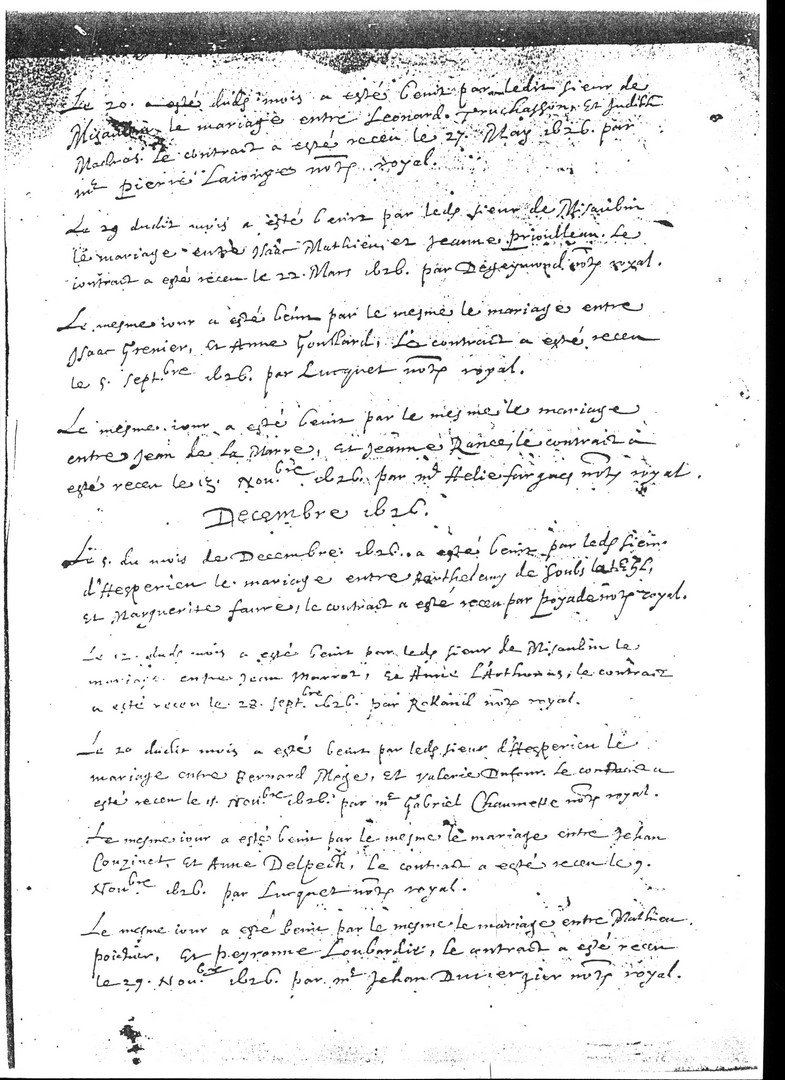 Le 20. a esté dudt mois a esté benit par ledit sieur de
Misaubin le mariage entre Leonard. Et Judith
le contract a esté receu le 27. May 1626. par
me pierre notre royal.
Le 29 dudit mois a esté benit par ledt sieur de Misaubin
le mariage entre Isaac Mathieu, et Jeanne priouleau. Le
contract a esté receu le 22. Mars 1626. par Degeymond notre royal.
Le mesme iour a esté benit par le mesme le mariage entre
Isaac Grenier, et Anne Goullard, Le contract a esté receu
le 5. Septbre 1626. par Lucquet notre royal.
Le mesme iour a esté benit par le mesme le mariage
entre Jean de la Marre, et Jeanne Rance, le contract a
esté receu le Noubre 1626. par me Helie furgues notre royal.
Decembre 1626.
Le 5. du mois de Decembre 1626. a esté benit par ledt sieur
d'Hesperien le mariage entre Barthelemy de
et Marguerite faure, le contract a esté receu par poyade notre royal.
Le 12. dudt mois a esté benit par ledt sieur de Misaubin le
mariage entre Jean Marrot, et Anne L'Arthomas, le contract
a esté receu le 28. Septbre 1626. par Rolland notre royal.
Le 20 dudit mois a esté benit par ledt sieur d'Hesperien le
mariage entre Bernard Moge, et Valerie Dufour. Le contract a
esté receu le Noubre 1626. par me Gabriel Chaumette notre royal.
Le mesme iour a esté benit par le mesme le mariage entre Jehan
Couzinet, et Anne Delpech, Le contract a esté receu le 9.
Noubre 1626. par Lucquet notre royal.
Le mesme iour a esté benit par le mesme le mariage entre Mathieu
poictier, Et peyronne Loubardie, le contract a esté receu
le 29. Noubre 1626. par me Jehan notre royal.